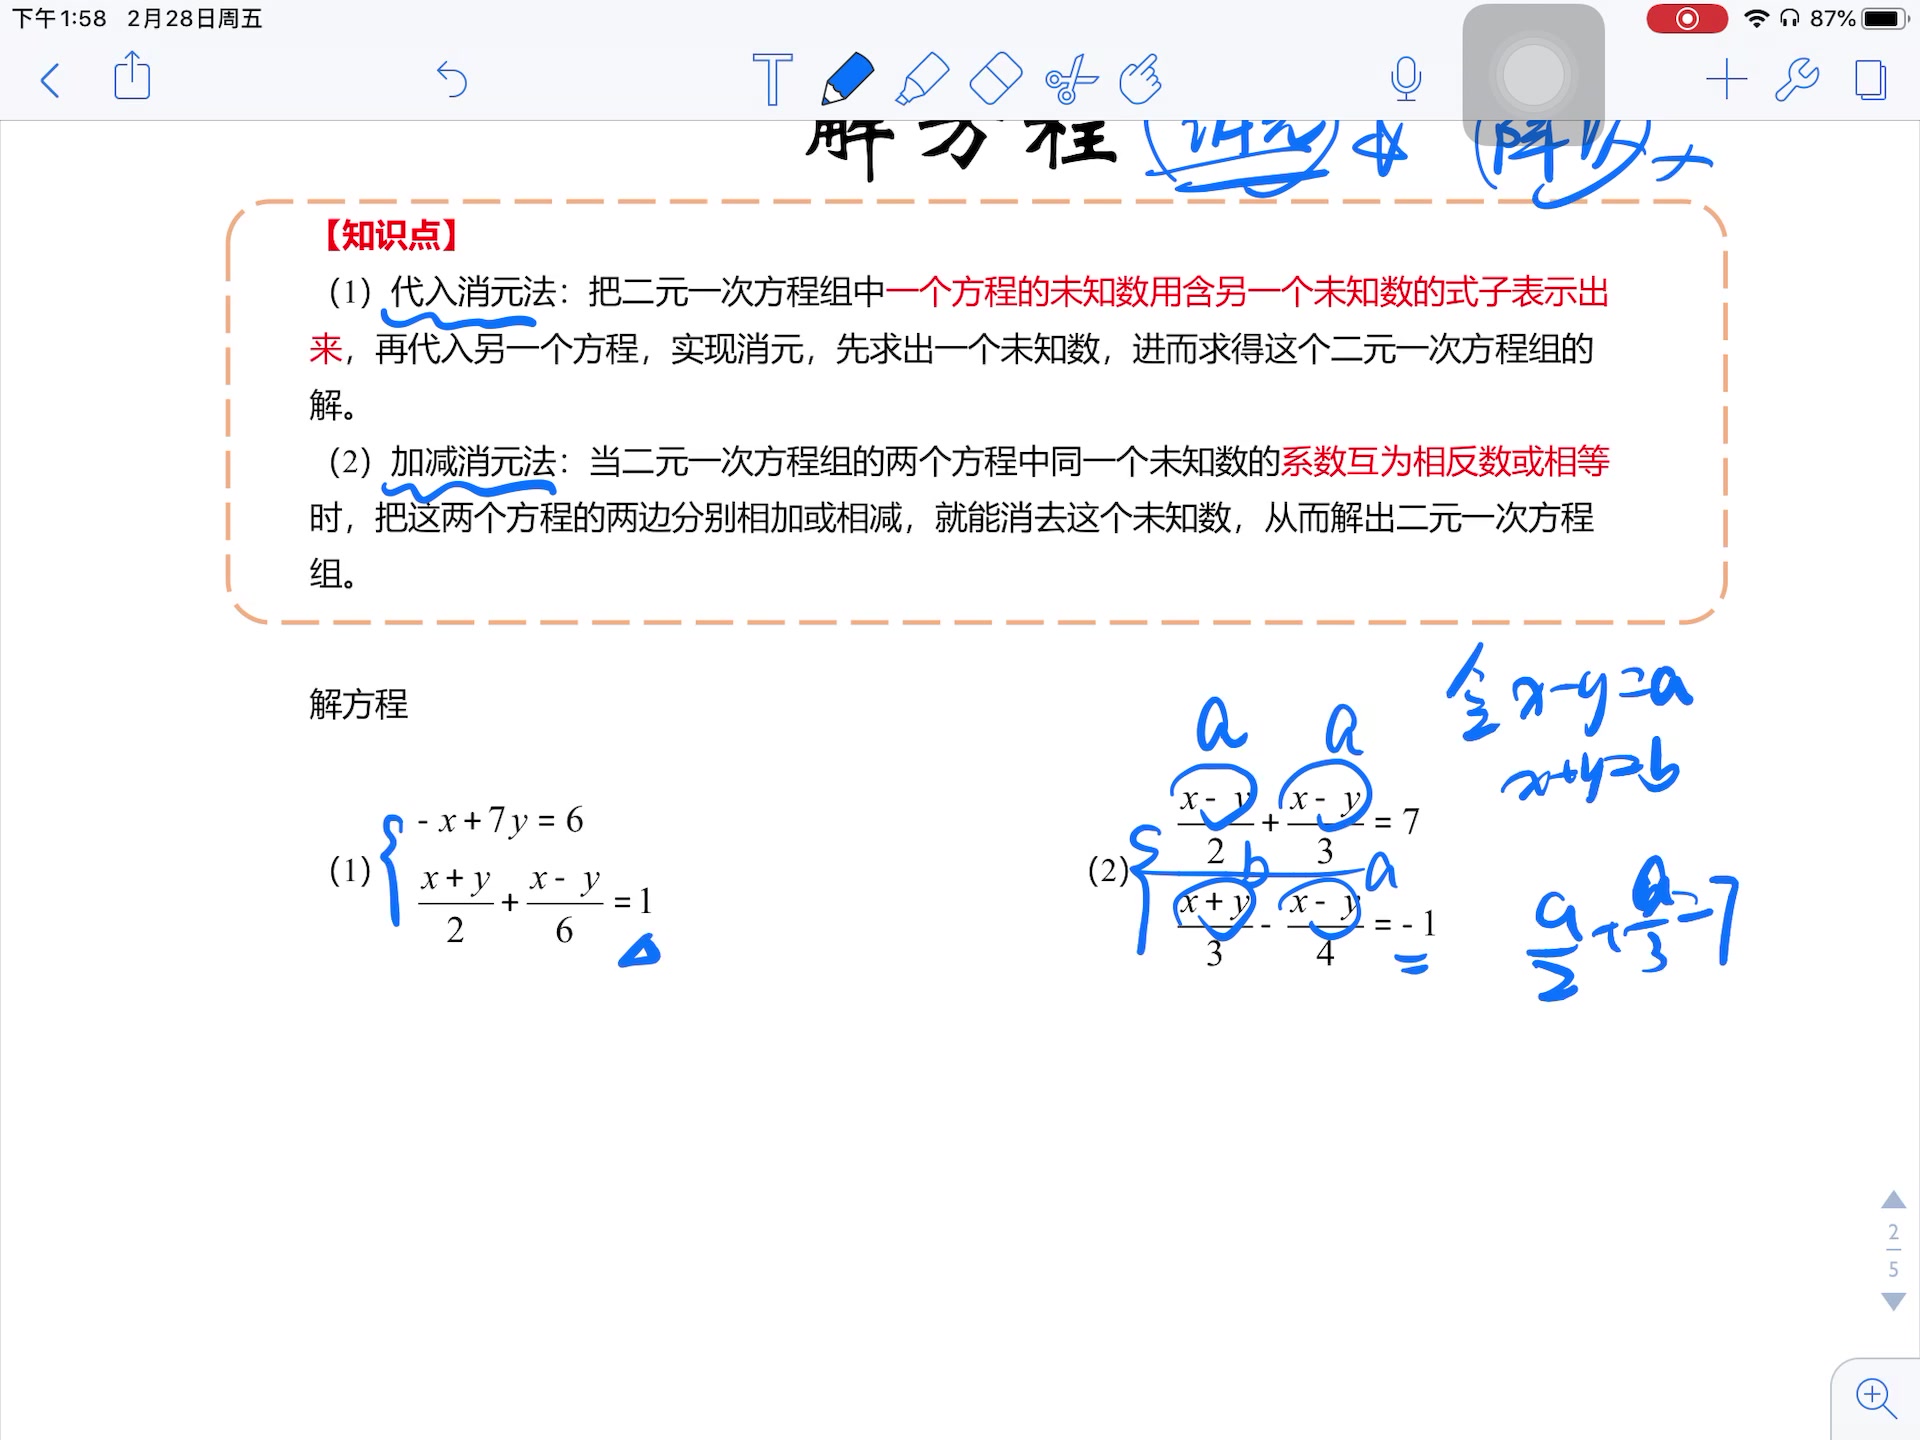 下午1:58 2月28日周五
87%
解方程(消元) (降次)
【知识点】
(1)代入消元法:把二元一次方程组中一个方程的未知数用含另一个未知数的式子表示出
来,再代入另一个方程,实现消元,先求出一个未知数,进而求得这个二元一次方程组的
解。
(2)加减消元法:当二元一次方程组的两个方程中同一个未知数的系数互为相反数或相等
时,把这两个方程的两边分别相加或相减,就能消去这个未知数,从而解出二元一次方程
组。
解方程
(1) { - x + 7y = 6
(x + y)/2 + (x - y)/6 = 1
a a
(2) { (x - y)/2 + (x - y)/3 = 7
b a
(x + y)/3 - (x - y)/4 = - 1
令 x-y=a
x+y=b
a/2 + a/3 = 7
2
5